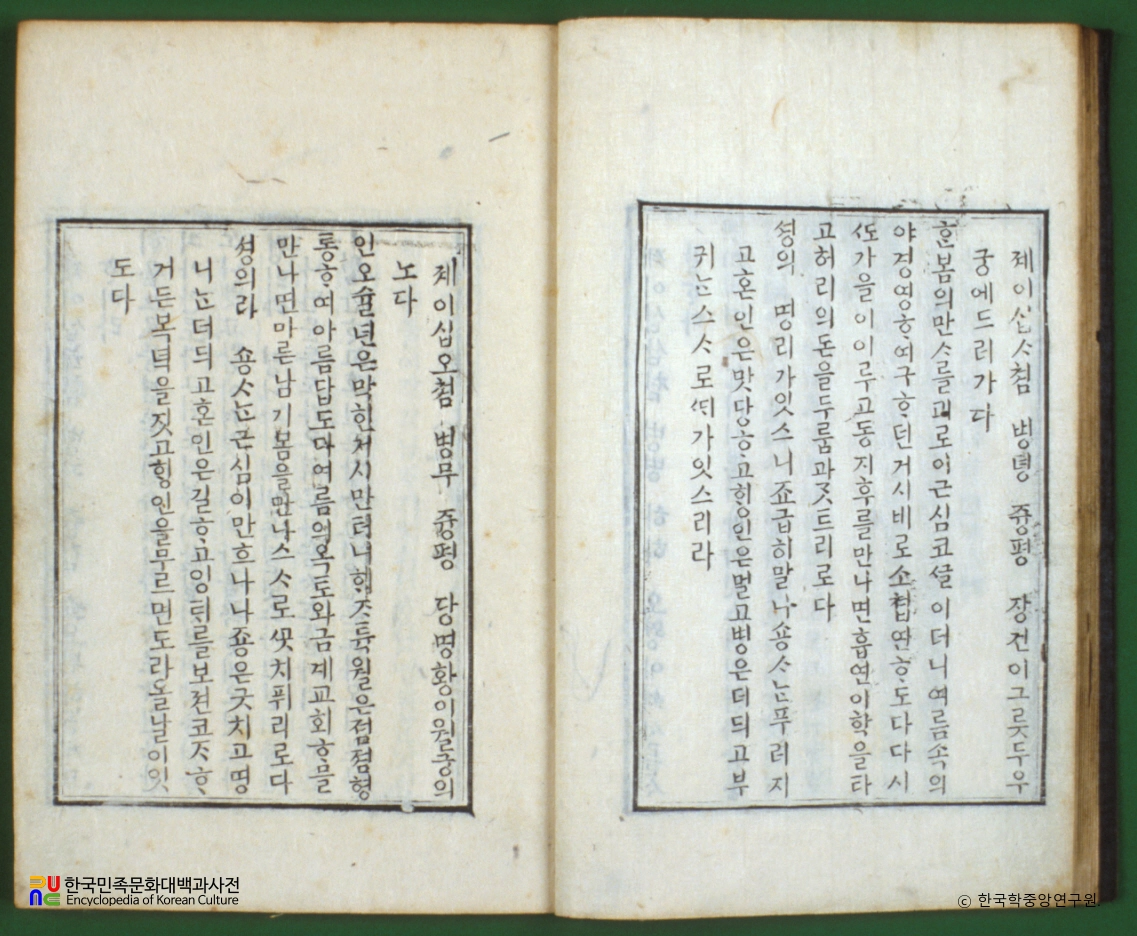 제이십ᄉᆞ쳠 병뎡 즁평 쟝건이그릇두우
궁에드러가다
ᄒᆞᆫ봄의만ᄉᆞ를괴로이근심코셜이더니여름속의
야경영ᄒᆞ여구ᄒᆞ던거시비로소쳡연ᄒᆞ도다다시
ᄯᅩ가을이이루고동지후를만나면흡연이학을타
고허리의돈을두룸과ᄀᆞᆺ트리로다
셩의 명리가잇스니죠급히말나숑ᄉᆞᄂᆞᆫ푸러지
고혼인은맛당ᄒᆞ고ᄒᆡᆼ인은멀고병은더듸고부
귀ᄂᆞᆫ스ᄉᆞ로ᄯᅢ가잇스리라
제이십오쳠 병무 즁평 당명황이월궁의
노다
인오슐년은막힌거시만터니ᄒᆡᄌᆞ듁월은졈졈형
통ᄒᆞ여아름답도다여름의옥토와금계교회ᄒᆞ믈
만나면마른남기봄을만나스ᄉᆞ로ᄭᅩᆺ치퓌리로다
셩의라 숑ᄉᆞᄂᆞᆫ근심이만흐나나죵은긋치고명
니ᄂᆞᆫ더듸고혼인은길ᄒᆞ고잉ᄐᆡ를보젼코ᄌᆞᄒᆞ
거든복덕을짓고ᄒᆡᆼ인을무르면도라올날이잇
도다
한국민족문화대백과사전
Encyclopedia of Korean Culture
© 한국학중앙연구원